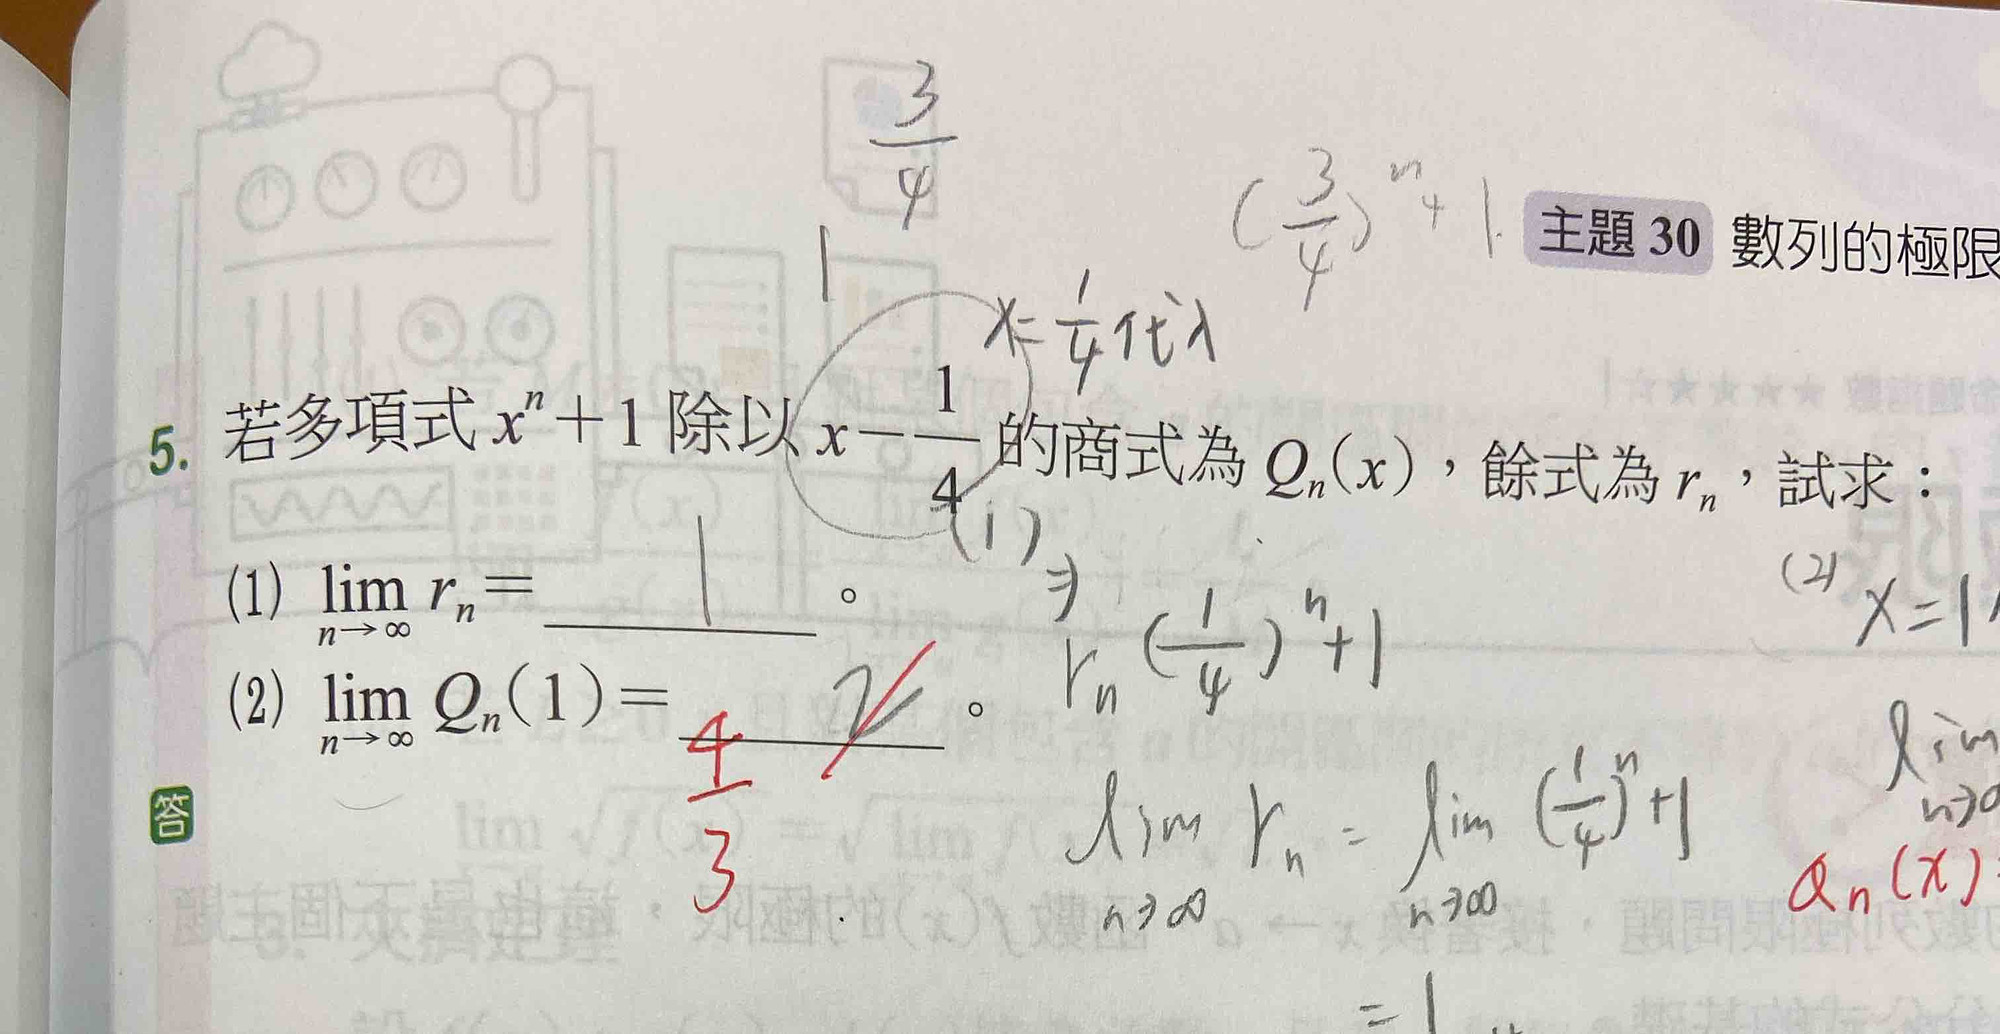 3/4
(3/4)^n + 1
主題 30 數列的極限
1
x = 1/4 代入
5. 若多項式 xⁿ+1 除以 x − 1/4 的商式為 Qₙ(x),餘式為 rₙ,試求:
(1) lim_{n→∞} rₙ = 1 。
(2) lim_{n→∞} Qₙ(1) = 2 。
4/3
答
(1)
⇒ rₙ (1/4)ⁿ+1
lim_{n→∞} rₙ = lim_{n→∞} (1/4)ⁿ+1
= 1
(2) x=1
lim_{n→∞}
Qₙ(x)